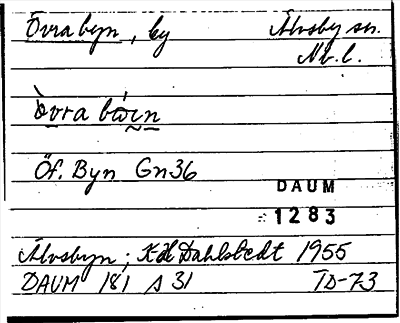 Övrabyn, by Älvsby sn.
Nb. l.
Öf. Byn Gn36
DAUM
1283
Älvsbyn; K-H Dahlstedt 1955
DAUM 181, s 31 TD-73